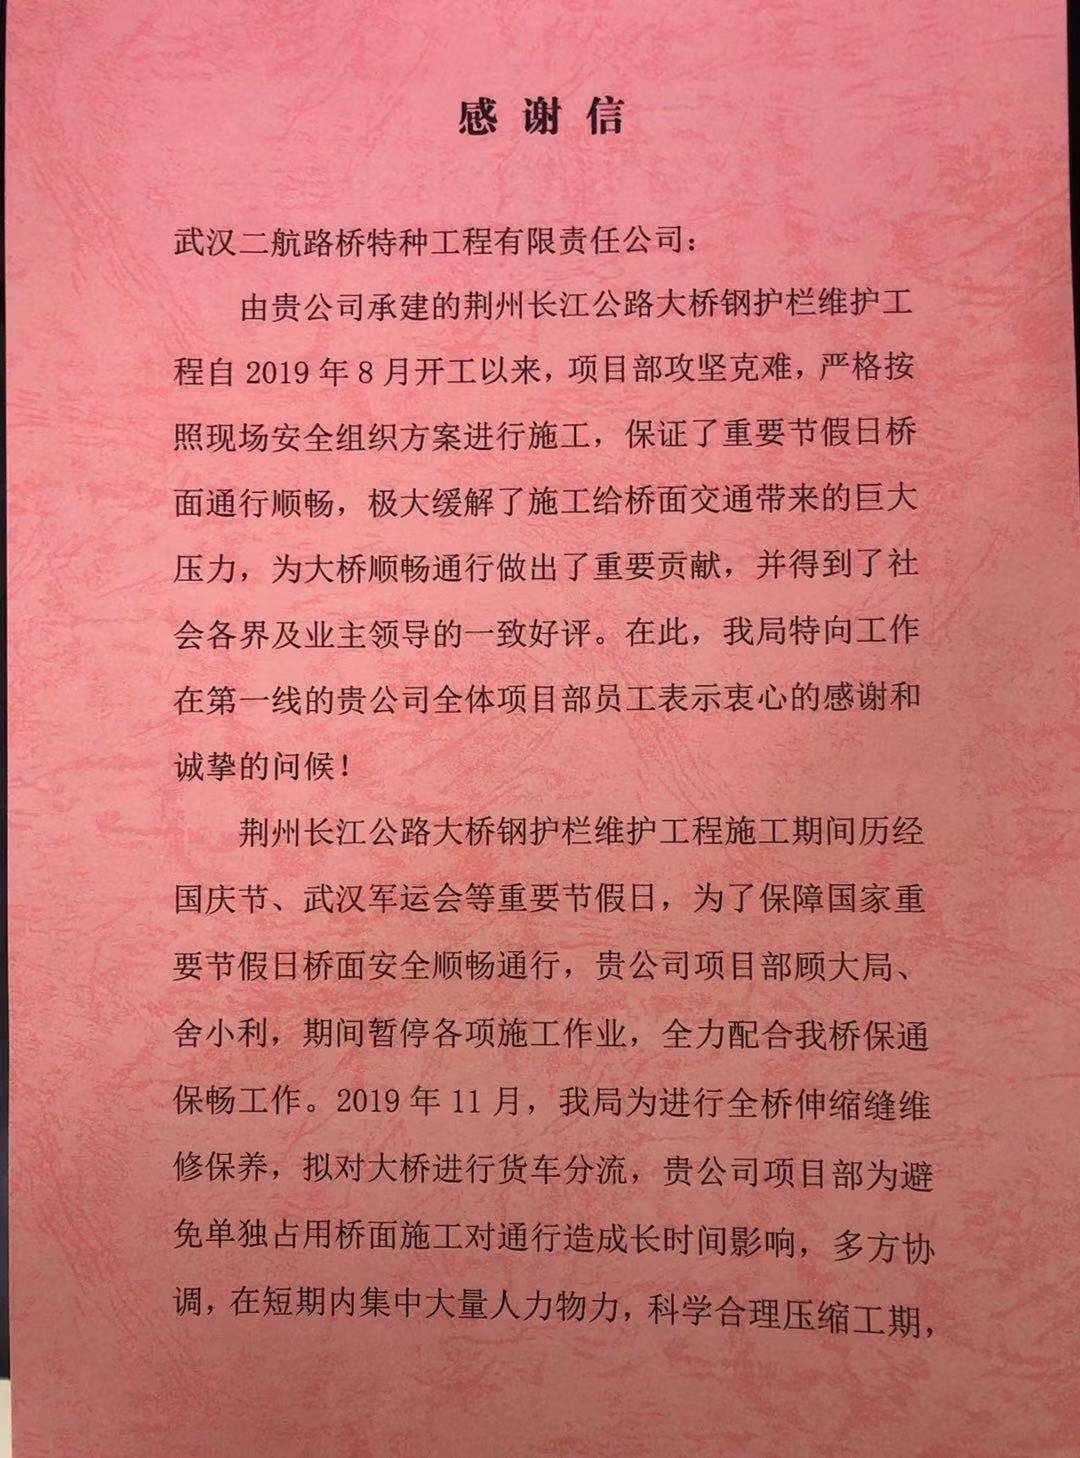 感谢信
武汉二航路桥特种工程有限责任公司：
由贵公司承建的荆州长江公路大桥钢护栏维护工
程自2019年8月开工以来，项目部攻坚克难，严格按
照现场安全组织方案进行施工，保证了重要节假日桥
面通行顺畅，极大缓解了施工给桥面交通带来的巨大
压力，为大桥顺畅通行做出了重要贡献，并得到了社
会各界及业主领导的一致好评。在此，我局特向工作
在第一线的贵公司全体项目部员工表示衷心的感谢和
诚挚的问候！
荆州长江公路大桥钢护栏维护工程施工期间历经
国庆节、武汉军运会等重要节假日，为了保障国家重
要节假日桥面安全顺畅通行，贵公司项目部顾大局、
舍小利，期间暂停各项施工作业，全力配合我桥保通
保畅工作。2019年11月，我局为进行全桥伸缩缝维
修保养，拟对大桥进行货车分流，贵公司项目部为避
免单独占用桥面施工对通行造成长时间影响，多方协
调，在短期内集中大量人力物力，科学合理压缩工期，